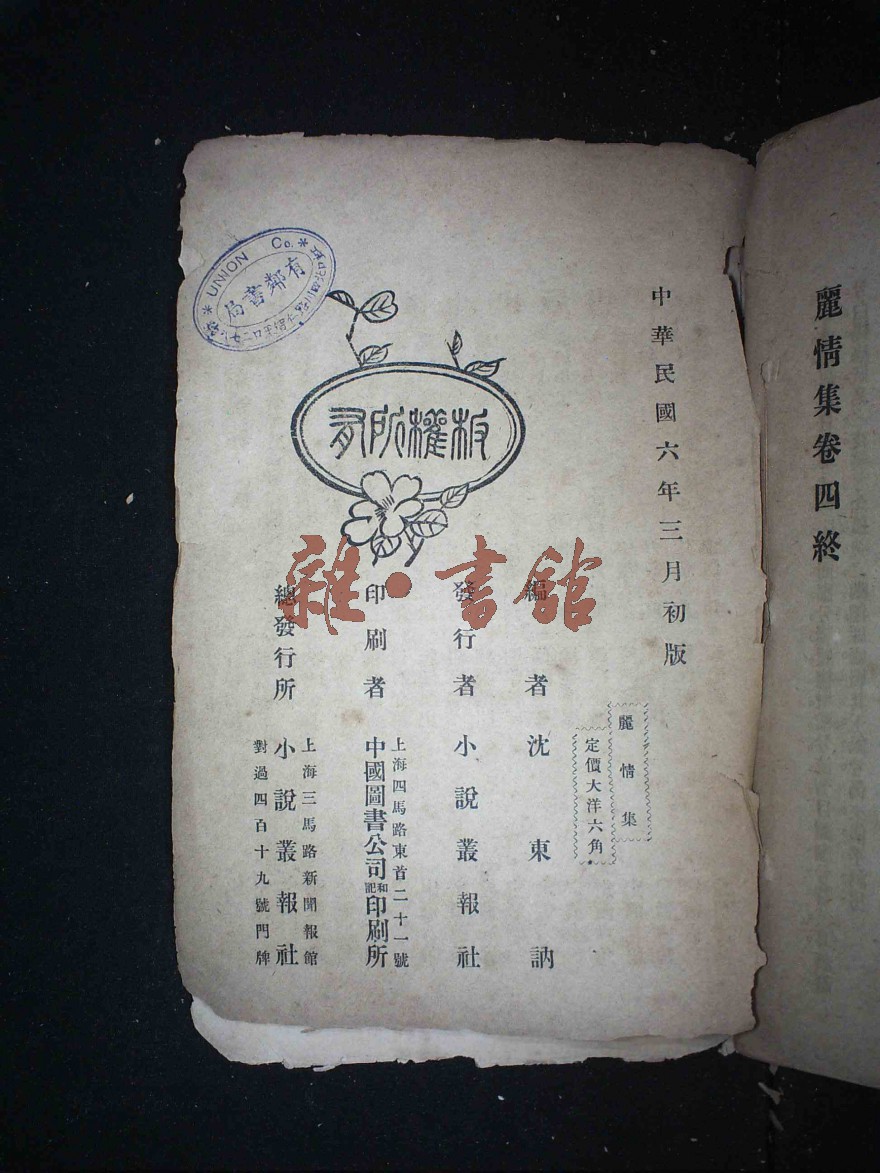 麗情集卷四終
中華民國六年三月初版
麗情集
定價大洋六角
編者 沈東訥
發行者 小說叢報社
上海四馬路東首二十一號
印刷者 中國圖書公司和記印刷所
上海三馬路新聞報館
總發行所 小說叢報社
對過四百十九號門牌
板權所有
UNION Co.
有鄰書局
雜·書館